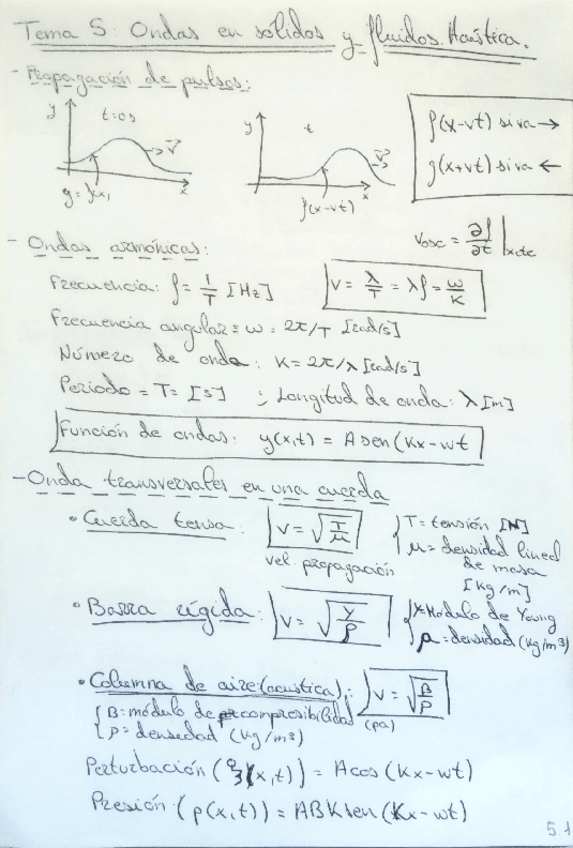 Tema 5: Ondas en solidos y fluidos. Acústica.
- Propagación de pulsos:
y t=0s v⃗ x
y = f(x)
y t v⃗ x
f(x-vt)
f(x-vt) si va →
g(x+vt) si va ←
Vosc = ∂f/∂t |x=cte
- Ondas armónicas:
Frecuencia: f = 1/T [Hz]
V = λ/T = λf = ω/K
Frecuencia angular = ω = 2π/T [rad/s]
Número de onda: K = 2π/λ [rad/s]
Periodo = T = [s] ; Longitud de onda: λ [m]
Función de ondas: y(x,t) = A sen(Kx-wt
- Onda transversales en una cuerda
• Cuerda tensa: V = √(T/μ)
vel. propagación
T = tensión [N]
μ = densidad lineal
de masa
[Kg/m]
• Barra rígida: V = √(Y/ρ)
Y = Módulo de Young
ρ = densidad (kg/m³)
• Columna de aire (acustica): V = √(B/ρ)
B = módulo de compresibilidad (pa)
ρ = densidad (kg/m³)
Perturbación (ξ(x,t)) = A cos (Kx-wt)
Presión (p(x,t)) = ABK sen (Kx-wt)
5.1